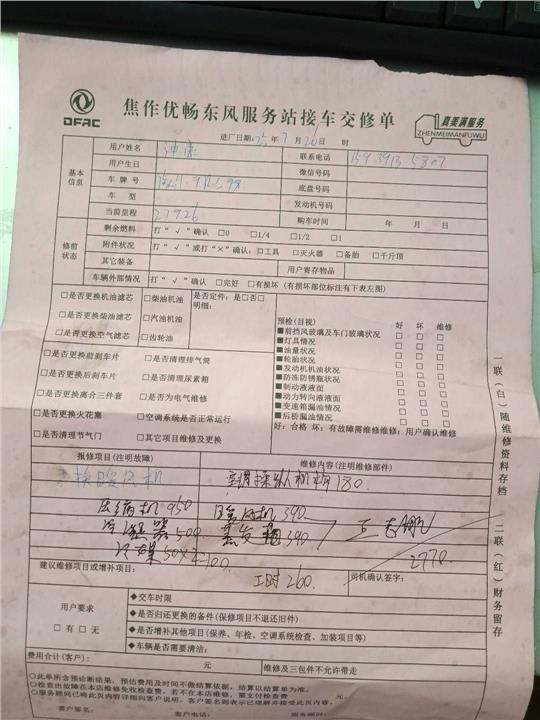 DFAC
焦作优畅东风服务站接车交修单
真美满服务
ZHENMEIMANFUWU
进厂日期: 25 年 7 月 26 日 时
基本信息
用户姓名 联系电话 159 3913 5807
用户生日 微信号码
车牌号 底盘号码
车型 发动机号码
当前里程 27926 购车时间 年 月 日
修前状态
剩余燃料 打“√”确认 □0 □1/4 □1/2 □1
附件状况 打“√”或打“×”确认: □工具 □灭火器 □备胎 □千斤顶
其它装备 用户寄存物品
车辆外部情况 打“√”确认 □完好 □有损坏 (有损坏部位标注有下表左图)
□是否更换机油滤芯 □柴油机油 是否定件: 是□否□
明细:
□是否更换柴油滤芯 □汽油机油
□是否更换空气滤芯 □齿轮油
预检(目视) 好 坏 维修
■前挡风玻璃及车门玻璃状况 □ □ □
■灯具情况 □ □ □
■油量状况 □ □ □
■轮胎状况 □ □ □
■发动机机油状况 □ □ □
■防冻防锈瓶状况 □ □ □
■制动液液面 □ □ □
■动力转向液液面 □ □ □
■变速箱漏油情况 □ □ □
■后桥漏油情况 □ □ □
好: 合格 坏: 有故障需维修维修: 用户确认维修
□是否更换前刹车片 □是否清理排气筒
□是否更换后刹车片 □是否清理尿素箱
□是否更换离合三件套 □是否为电气维修
□是否更换火花塞 □空调系统是否正常运行
□是否清理节气门 □其它项目维修及更换
报修项目(注明故障) 维修内容(注明维修部件)
换暖风机 空调操纵机构 180
压缩机 950 暖风机 390
冷凝器 500 蒸发箱 390
冷媒 50×2=100
2770
建议维修项目或增补项目: 工时 260 司机确认签字:
用户要求
□有 □无
◆交车时限
◆是否归还更换的备件(保修项目不退还旧件)
◆是否增补其他项目(保养、年检、空调系统检查、加装项目等)
◆车辆是否需要清洁:
费用合计(客户): 元 维修及三包件不允许带走
○此单所含预诊断结果, 预估费用及时间不做结算依据, 结算以结算单为准。
○检查出故障在本店维修免收检查费, 若不在本店维修, 需支付检查费 元。
○服务顾问已将此页内容详细向客户说明, 客户签名则表示已理解并接受此页内容。
客户签名: 客户电话: 服务顾问:
一联(白)随维修资料存档 二联(红)财务留存